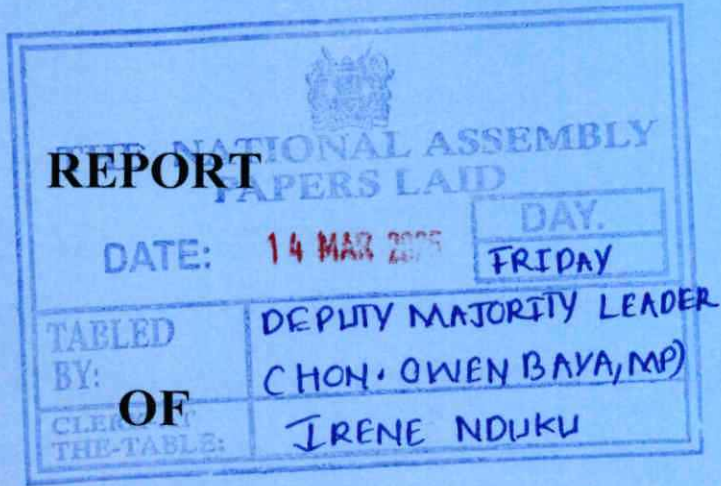 THE NATIONAL ASSEMBLY
REPORT
PAPERS LAID
DATE: 14 MAR 2025 DAY.
FRIDAY
TABLED BY: DEPUTY MAJORITY LEADER
(HON. OWEN BAYA, MP)
OF
THE-TABLE: IRENE NDUKU